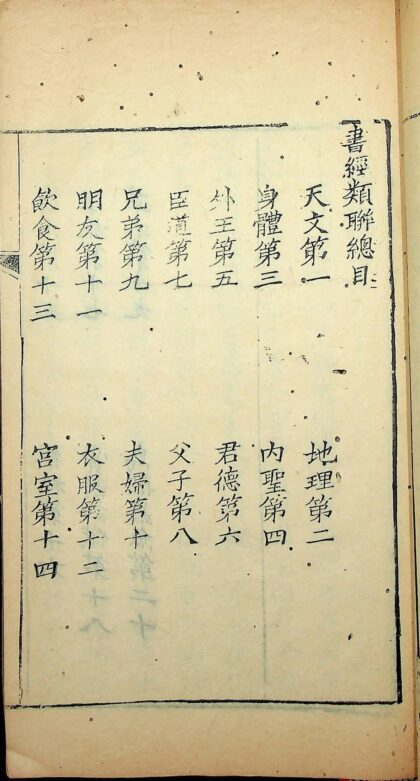 書經類聯總目
天文第一 地理第二
身體第三 內聖第四
外王第五 君德第六
臣道第七 父子第八
兄弟第九 夫婦第十
朋友第十一 衣服第十二
飲食第十三 宮室第十四